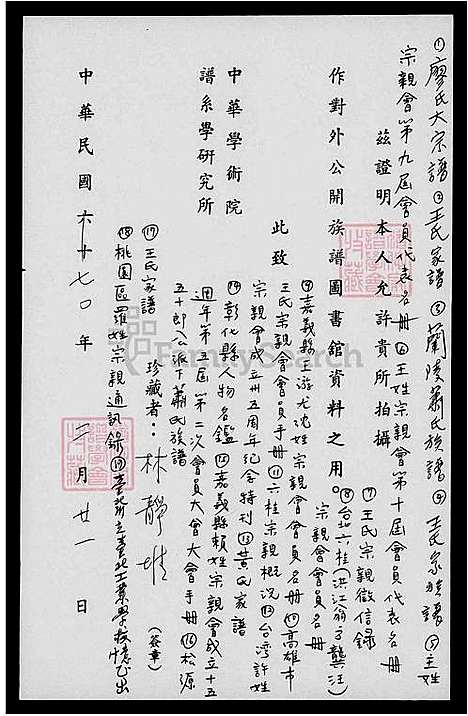 ①廖氏大宗譜②王氏家譜③蘭陵蕭氏族譜④王氏家族譜⑤王姓
宗親會第九屆會員代表名冊⑥王姓宗親會第十屆會員代表名冊
茲證明本人允許貴所拍攝
⑦王氏宗親徵信錄
作對外公開族譜圖書館資料之用。
⑧台北六桂(洪江翁方龔汪)
宗親會會員名冊
此致
⑨嘉義縣游尤沈姓宗親會會員名冊⑩高雄市
王氏宗親會會員手冊⑪六桂宗親概況⑫台湾許姓
中華學術院
宗親會成立卅五周年紀念特刊⑬黄氏家譜
譜系學研究所
⑭彰化縣人物名鑑⑮嘉義縣賴姓宗親會成立十五
週年第五屆第二次會員大會大會手冊⑯松源
五十郎公派下蕭氏族譜
珍藏者：林靜堆(簽章)
⑰王氏家譜
⑱桃園區羅姓宗親通訊錄⑲臺北工業學校
中華民國六十七〇年三月廿一日
FamilySearch